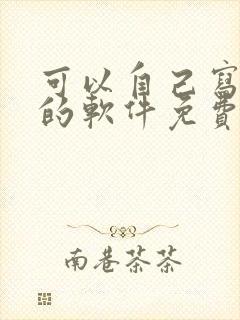 可以自己寫
的軟件免費
南巷茶茶